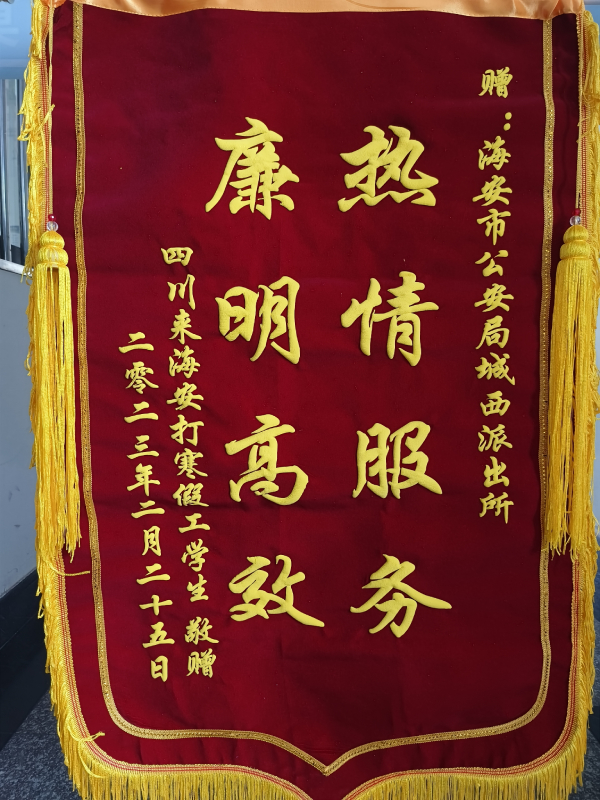 赠：海安市公安局城西派出所
热情服务
廉明高效
四川来海安打寒假工学生 敬赠
二零二三年二月二十五日